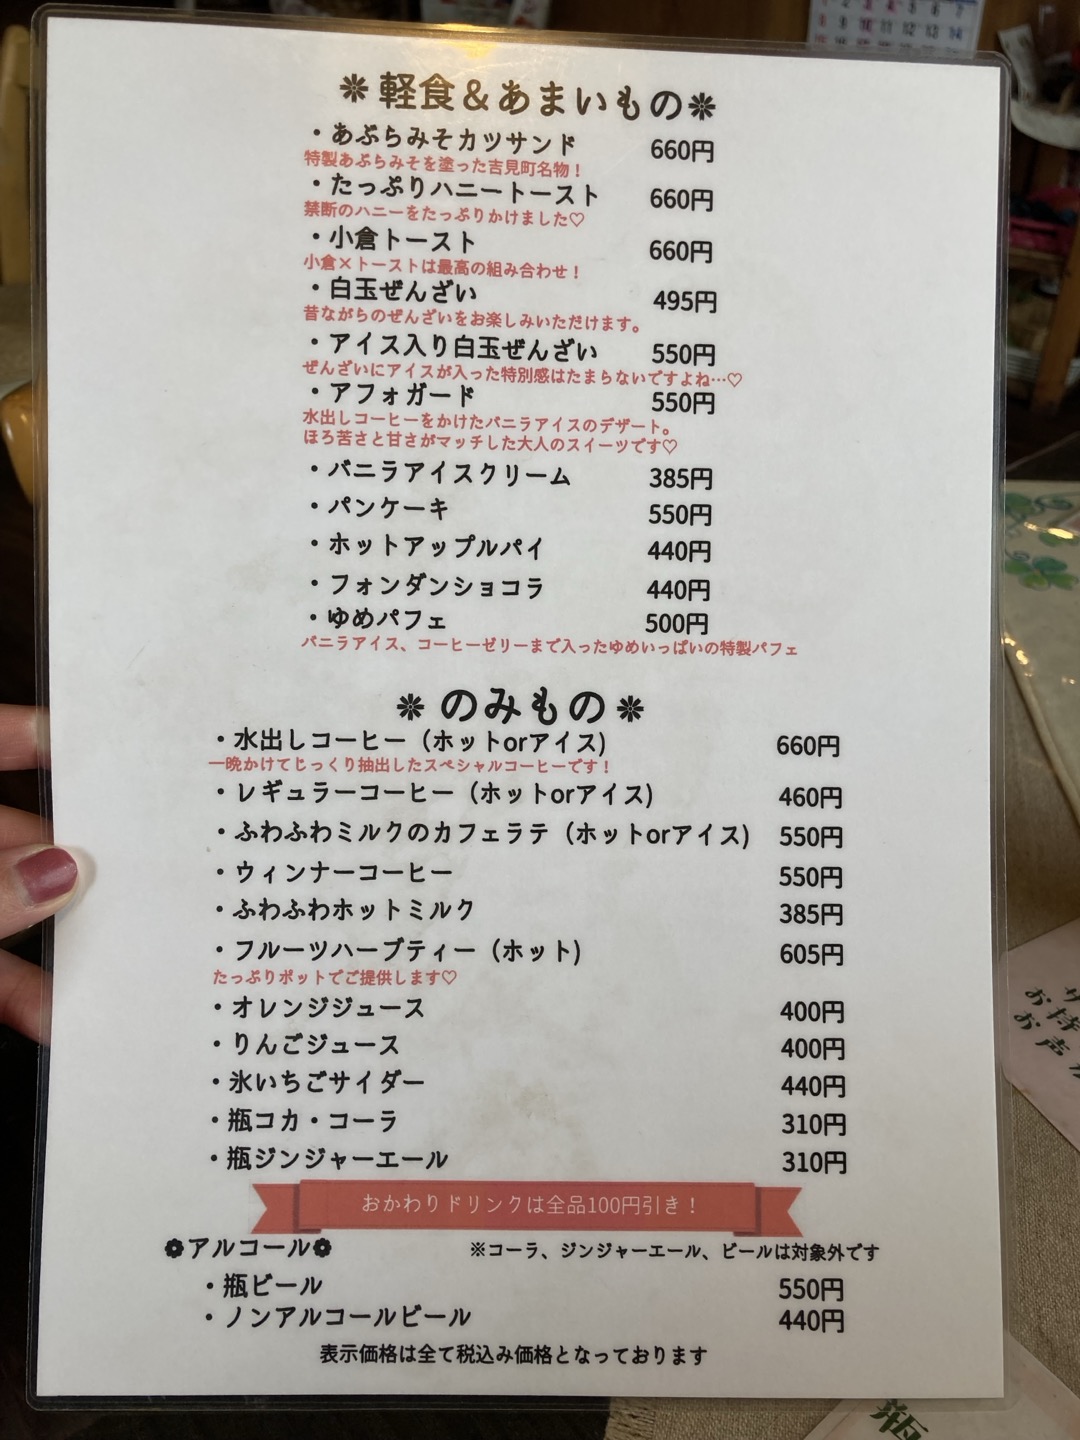 ❊軽食＆あまいもの❊
・あぶらみそカツサンド 660円
特製あぶらみそを塗った吉見町名物！
・たっぷりハニートースト 660円
禁断のハニーをたっぷりかけました♡
・小倉トースト 660円
小倉×トーストは最高の組み合わせ！
・白玉ぜんざい 495円
昔ながらのぜんざいをお楽しみいただけます。
・アイス入り白玉ぜんざい 550円
ぜんざいにアイスが入った特別感はたまらないですよね…♡
・アフォガード 550円
水出しコーヒーをかけたバニラアイスのデザート。
ほろ苦さと甘さがマッチした大人のスイーツです♡
・バニラアイスクリーム 385円
・パンケーキ 550円
・ホットアップルパイ 440円
・フォンダンショコラ 440円
・ゆめパフェ 500円
バニラアイス、コーヒーゼリーまで入ったゆめいっぱいの特製パフェ
❊のみもの❊
・水出しコーヒー（ホットorアイス） 660円
一晩かけてじっくり抽出したスペシャルコーヒーです！
・レギュラーコーヒー（ホットorアイス） 460円
・ふわふわミルクのカフェラテ（ホットorアイス） 550円
・ウィンナーコーヒー 550円
・ふわふわホットミルク 385円
・フルーツハーブティー（ホット） 605円
たっぷりポットでご提供します♡
・オレンジジュース 400円
・りんごジュース 400円
・氷いちごサイダー 440円
・瓶コカ・コーラ 310円
・瓶ジンジャーエール 310円
おかわりドリンクは全品100円引き！
❁アルコール❁ ※コーラ、ジンジャーエール、ビールは対象外です
・瓶ビール 550円
・ノンアルコールビール 440円
表示価格は全て税込み価格となっております
お持
お声
瓶